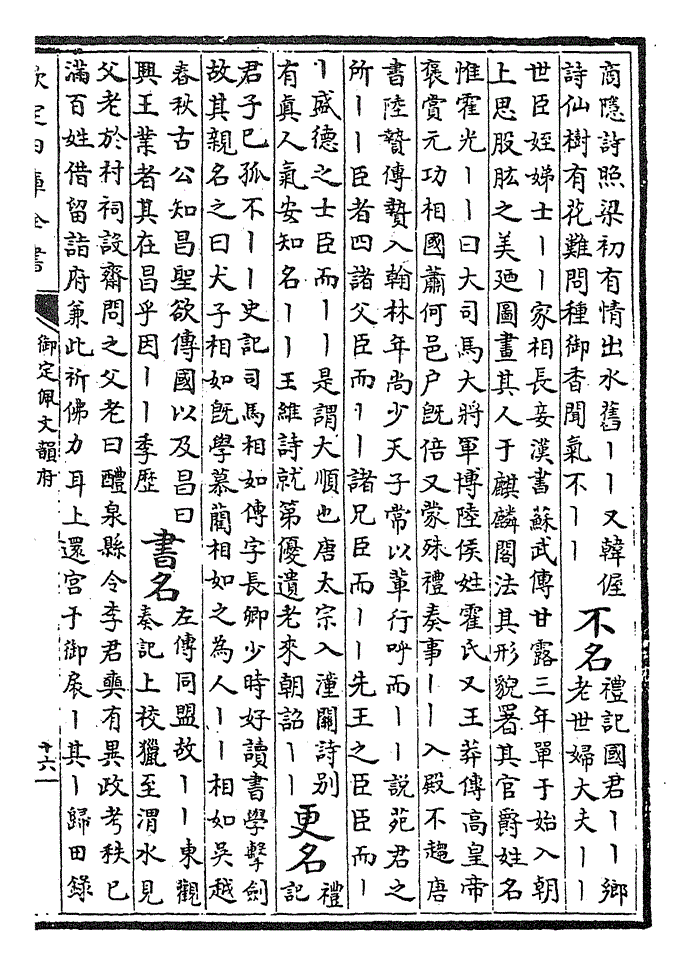 商隱詩照梁初有情出水舊丨丨又韓偓
詩仙樹有花難問種御香聞氣不丨丨
不名
禮記國君丨丨卿
老世婦大夫丨丨
世臣姪娣士丨丨家相長妾漢書蘇武傳甘露三年單于始入朝
上思股肱之美廼圖畫其人于麒麟閣法其形貌署其官爵姓名
惟霍光丨丨曰大司馬大將軍博陸侯姓霍氏又王莽傳高皇帝
褒賞元功相國蕭何邑户既倍又蒙殊禮奏事丨丨入殿不趨唐
書陸贄傳贄入翰林年尚少天子常以輩行呼而丨丨說苑君之
所丨丨臣者四諸父臣而丨丨諸兄臣而丨丨先王之臣臣而丨
丨盛德之士臣而丨丨是謂大順也唐太宗入潼關詩别
有真人氣安知名丨丨王維詩就第優遺老來朝詔丨丨
更名
禮
記
君子已孤不丨丨史記司馬相如傳字長卿少時好讀書學擊劍
故其親名之曰犬子相如既學慕藺相如之為人丨丨相如吳越
春秋古公知昌聖欲傳國以及昌曰
興王業者其在昌乎因丨丨季歷
書名
左傳同盟故丨丨東觀
奏記上校獵至渭水見
父老於村祠設齋問之父老曰醴泉縣令李君奭有異政考秩已
滿百姓借留詣府兼此祈佛力耳上還宫于御扆丨其丨歸田錄
欽定四庫全書
御定佩文韻府
十六